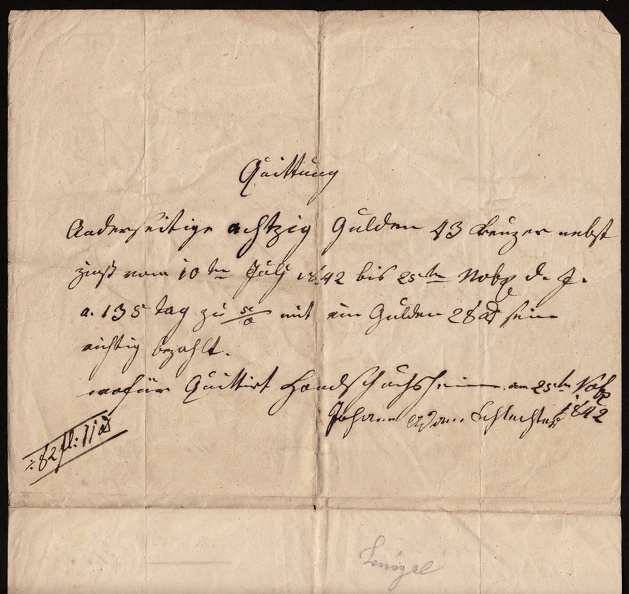 Quittung
Anderseitige achtzig Gulden 43 Kreuzer nebst
Zinß vom 10ten July 1842 bis 25ten Nobr d. J.
a. 135 tag zu 5/0 mit ein Gulden 28 x sein
richtig bezahlt.
wofür Quittirt Handschuchsheim am 25ten Nobr
Johann Adam Schlechter 1842
:82 fl: 11 x